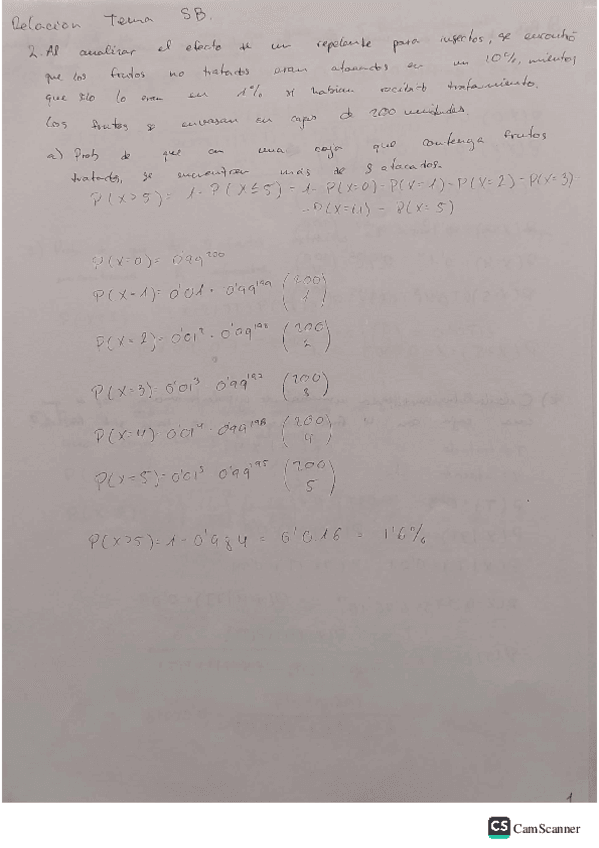 Relacion Tema 5B.
2. Al analizar el efecto de un repelente para insectos, se encontró
que los frutos no tratados eran atacados en un 10%, mientras
que sólo lo eran en 1% si habían recibido tratamiento.
Los frutos se envasan en cajas de 200 unidades.
a) Prob de que en una caja que contenga frutos
tratados, se encuentren más de 5 atacados.
P(X>5) = 1 - P(X≤5) = 1 - P(X=0) - P(X=1) - P(X=2) - P(X=3) -
- P(X=4) - P(X=5)
P(X=0) = 0'99²⁰⁰
P(X=1) = 0'01 · 0'99¹⁹⁹ (200 1)
P(X=2) = 0'01² · 0'99¹⁹⁸ (200 2)
P(X=3) = 0'01³ 0'99¹⁹⁷ (200 3)
P(X=4) 0'01⁴ · 0'99¹⁹⁶ (200 4)
P(X=5) = 0'01⁵ 0'99¹⁹⁵ (200 5)
P(X>5) = 1 - 0'984 = 0'016 = 1'6%
1
CS CamScanner